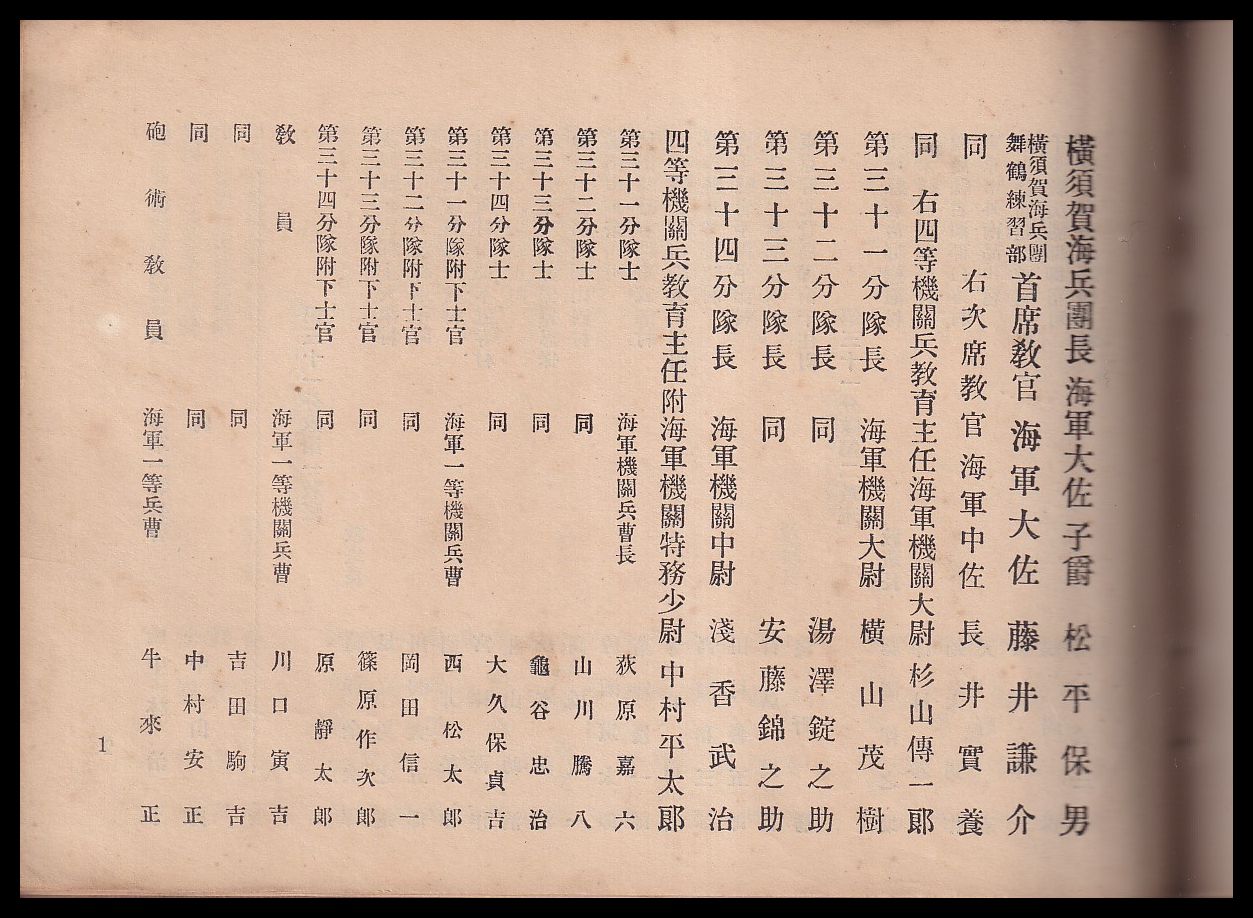 橫須賀海兵團長 海軍大佐 子爵 松平保男
橫須賀海兵團
舞鶴練習部
首席教官 海軍大佐 藤井謙介
同 右次席教官 海軍中佐 長井實養
同 右四等機關兵教育主任 海軍機關大尉 杉山傳一郞
第三十一分隊長 海軍機關大尉 橫山茂樹
第三十二分隊長 同 湯澤錠之助
第三十三分隊長 同 安藤錦之助
第三十四分隊長 海軍機關中尉 淺香武治
四等機關兵教育主任附 海軍機關特務少尉 中村平太郞
第三十一分隊士 海軍機關兵曹長 荻原嘉六
第三十二分隊士 同 山川騰八
第三十三分隊士 同 龜谷忠治
第三十四分隊士 同 大久保貞吉
第三十一分隊附下士官 海軍一等機關兵曹 西松太郞
第三十二分隊附下士官 同 岡田信一
第三十三分隊附下士官 同 篠原作次郞
第三十四分隊附下士官 同 原靜太郞
教員 海軍一等機關兵曹 川口寅吉
同 同 吉田駒吉
同 同 中村安正
砲術教員 海軍一等兵曹 牛來正
1